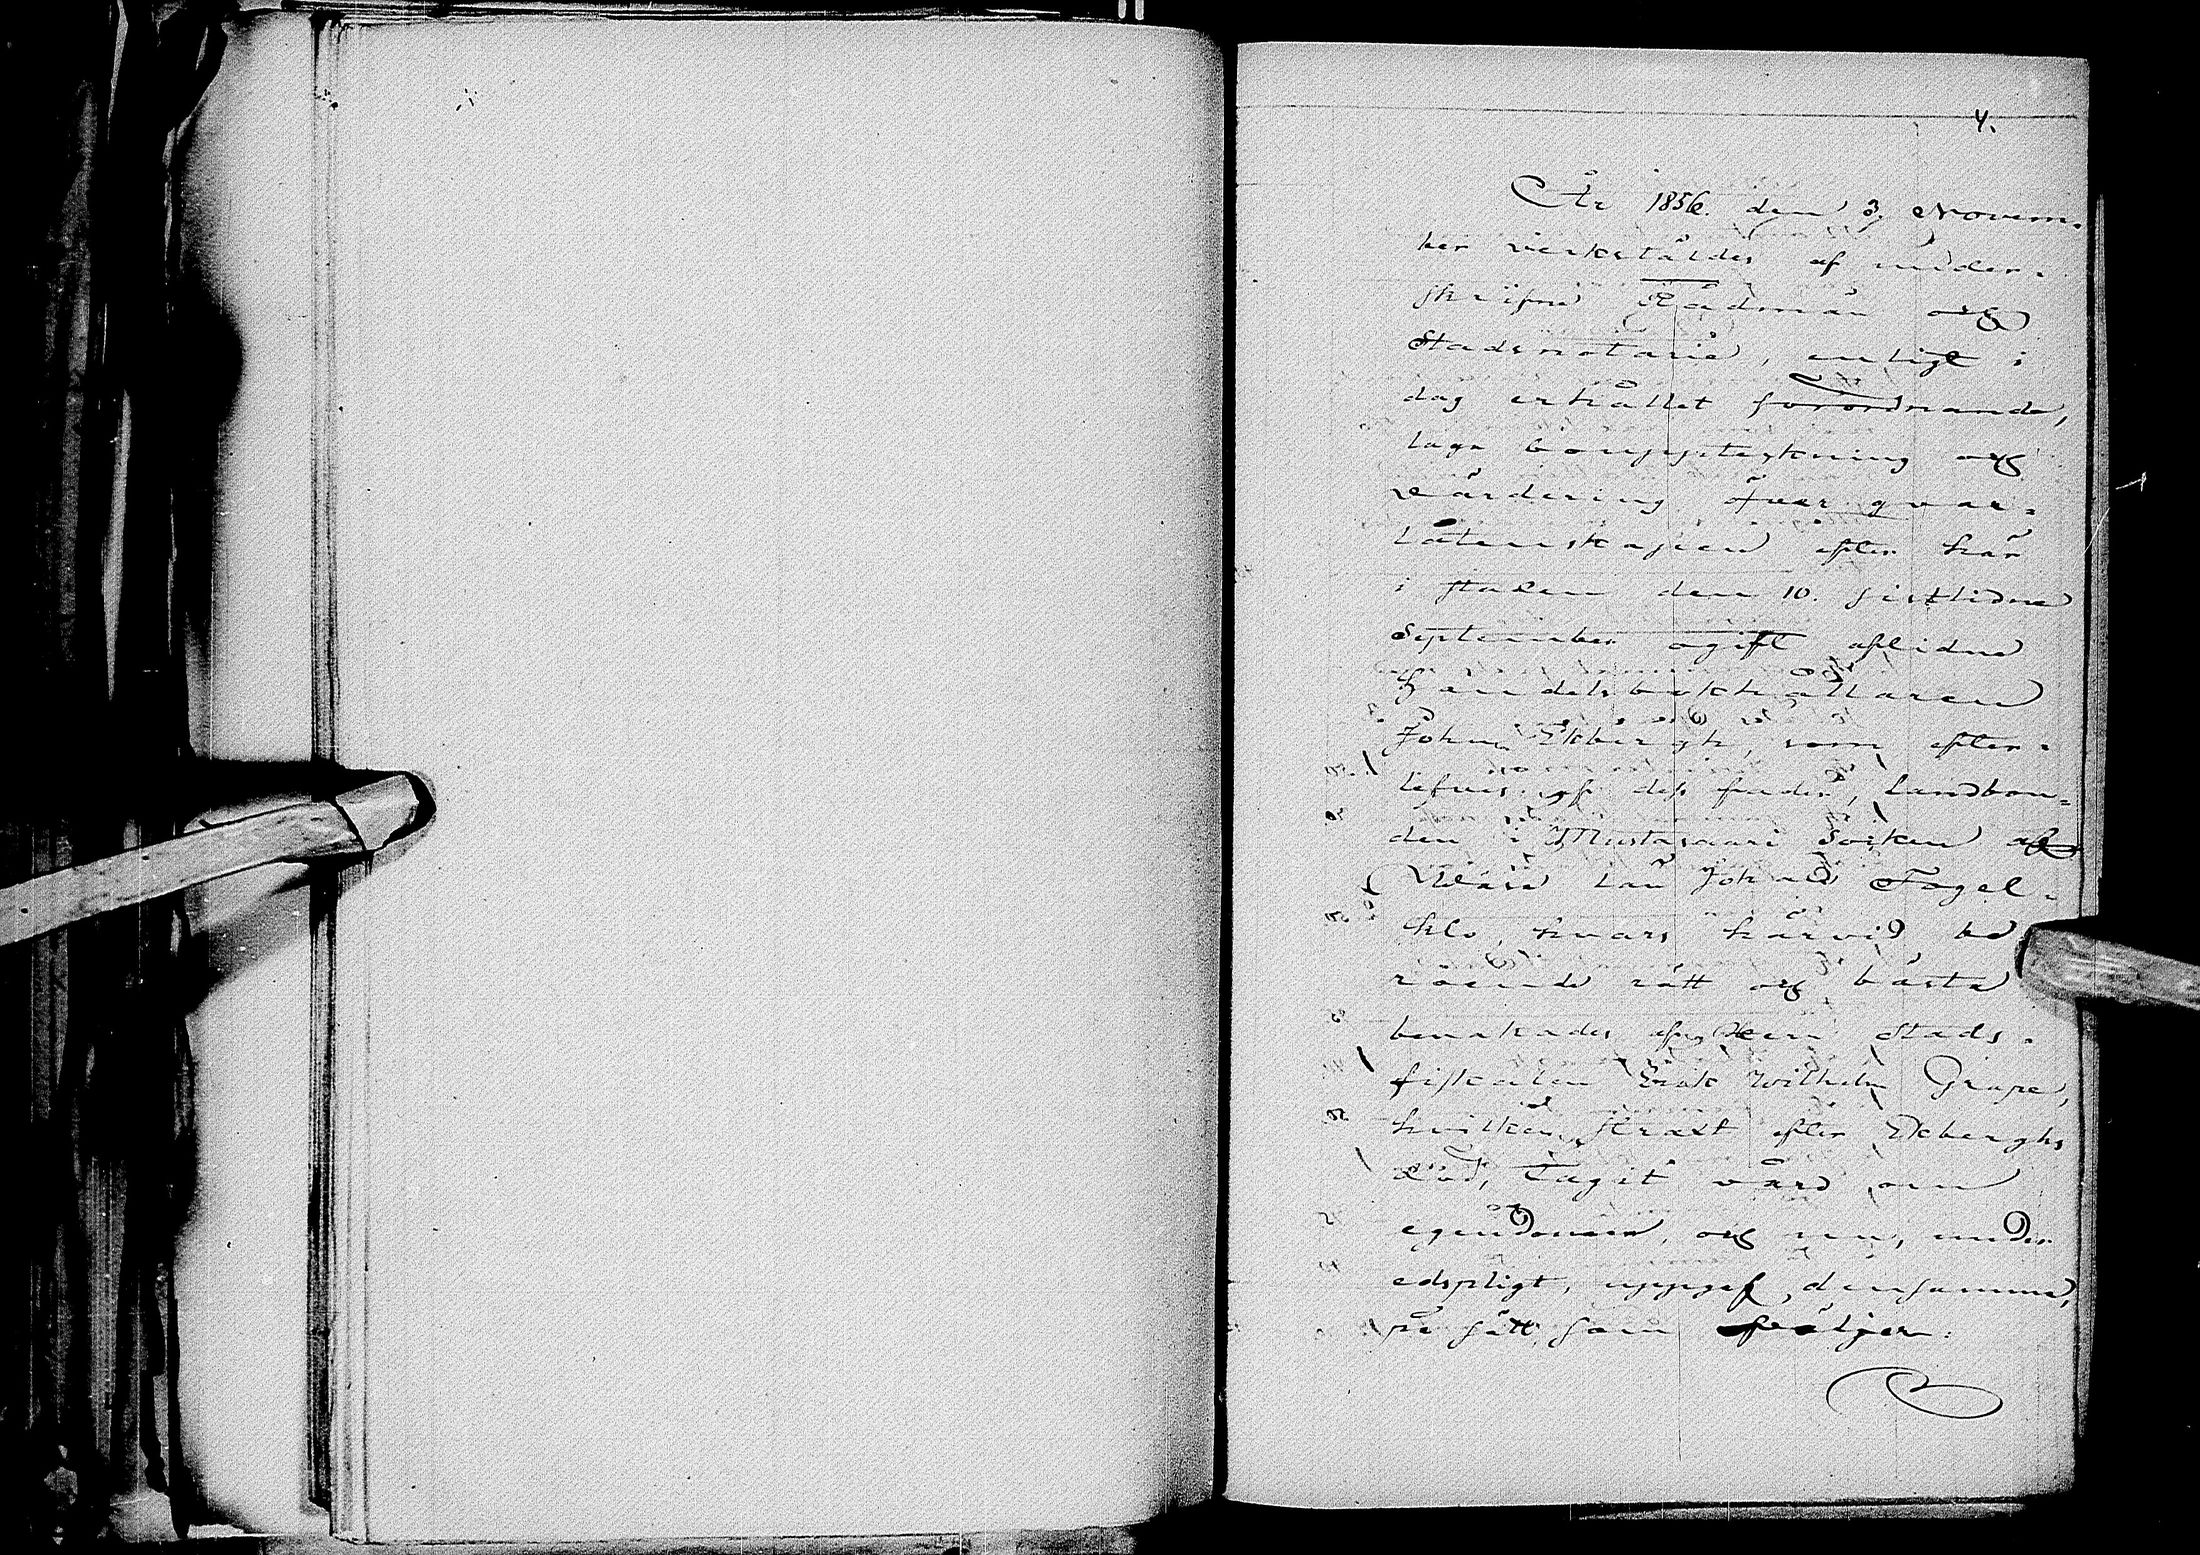 4.
År 1856. den 3. Novem-
ber verkstäldes af under-
skrifne Rådman och
Stadsnotarie, enligt i
dag erhållet förordnande,
laga bouppteckning och
värdering öfver qvar-
låtenskapen efter här
i staden den 10. sistlidne
September ogift aflidne
Handelsbokhållaren
Johan Ekbergh, som efter-
lefves af dess fader, Landbon-
den i Mustasaari Socken och
Wasa Län Johan Fogel-
klo, hvars härvid be
roende rätt och bästa
bevakades af Herr Stads-
fiskalen Erik Wilhelm Grape,
hvilken, straxt efter Ekberghs
död, tagit vård om
egendomen, och nu, under
edspligt, uppgaf densamma,
på sätt som följer: